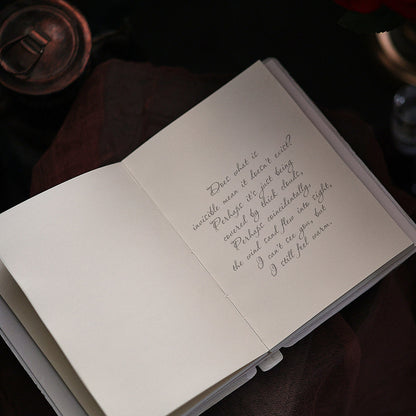 Does what is
invisible mean it doesn't exist?
Perhaps it's just being
covered by thick clouds,
Perhaps coincidentally
the wind sand flew into sight,
I can't see you, but
I still feel warm.